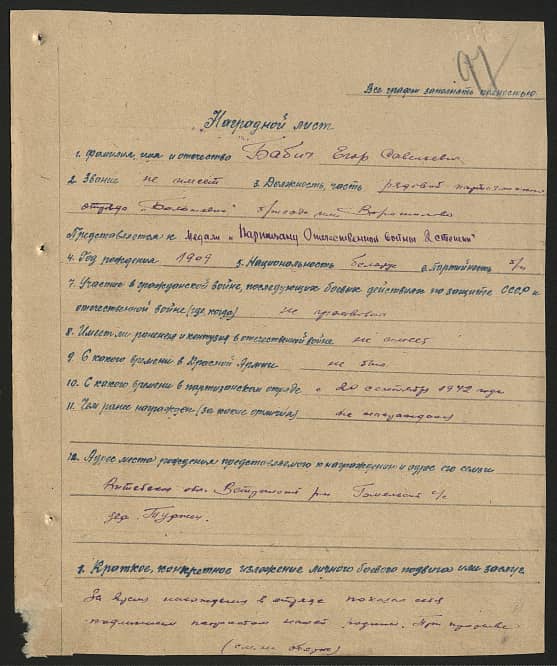 97
Все графы заполнять полностью.
Наградной лист
1. Фамилия, имя и отчество Бабич Егор Савельевич
2. Звание не имеет 3. Должность, часть рядовой партизанского
отряда "Большевик" бригады им. Ворошилова
Представляется к медали "Партизану Отечественной войны 2 степени"
4. Год рождения 1909 5. Национальность белорус 6. Партийность б/п
7. Участие в гражданской войне, последующих боевых действиях по защите СССР и
отечественной войне (где, когда) не принимал
8. Имеет ли ранения и контузия в отечественной войне не имеет
9. С какого времени в Красной Армии не был
10. С какого времени в партизанском отряде с 20 сентября 1942 года
11. Чем ранее награжден (за какие отличия) не награждался
12. Адрес места рождения представляемого к награждению и адрес его семьи
Витебская обл. Ветринский р-н с/с
дер.
1. Краткое, конкретное изложение личного боевого подвига или заслуг
За время нахождения в отряде показал себя
подлинным патриотом нашей родины. При
(см. на обор.)